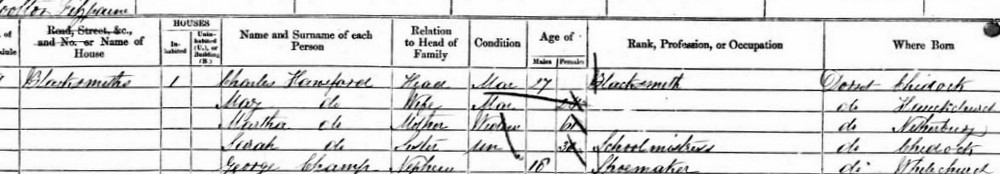 Road, Street, &c., and No. or Name of House HOUSES In-habited Unin-habited (U.), or Building (B.) Name and Surname of each Person Relation to Head of Family Condition Age of Males Females Rank, Profession, or Occupation Where Born
Blacksmiths 1 Charles Hansford Head Mar 27 Blacksmith Dorset Chidock
Mary do Wife Mar do
Martha do Mother Widow do Netherbury
Sarah do Sister Un Schoolmistress do Chidock
George Champ Nephew 16 Shoemaker do Whitchurch